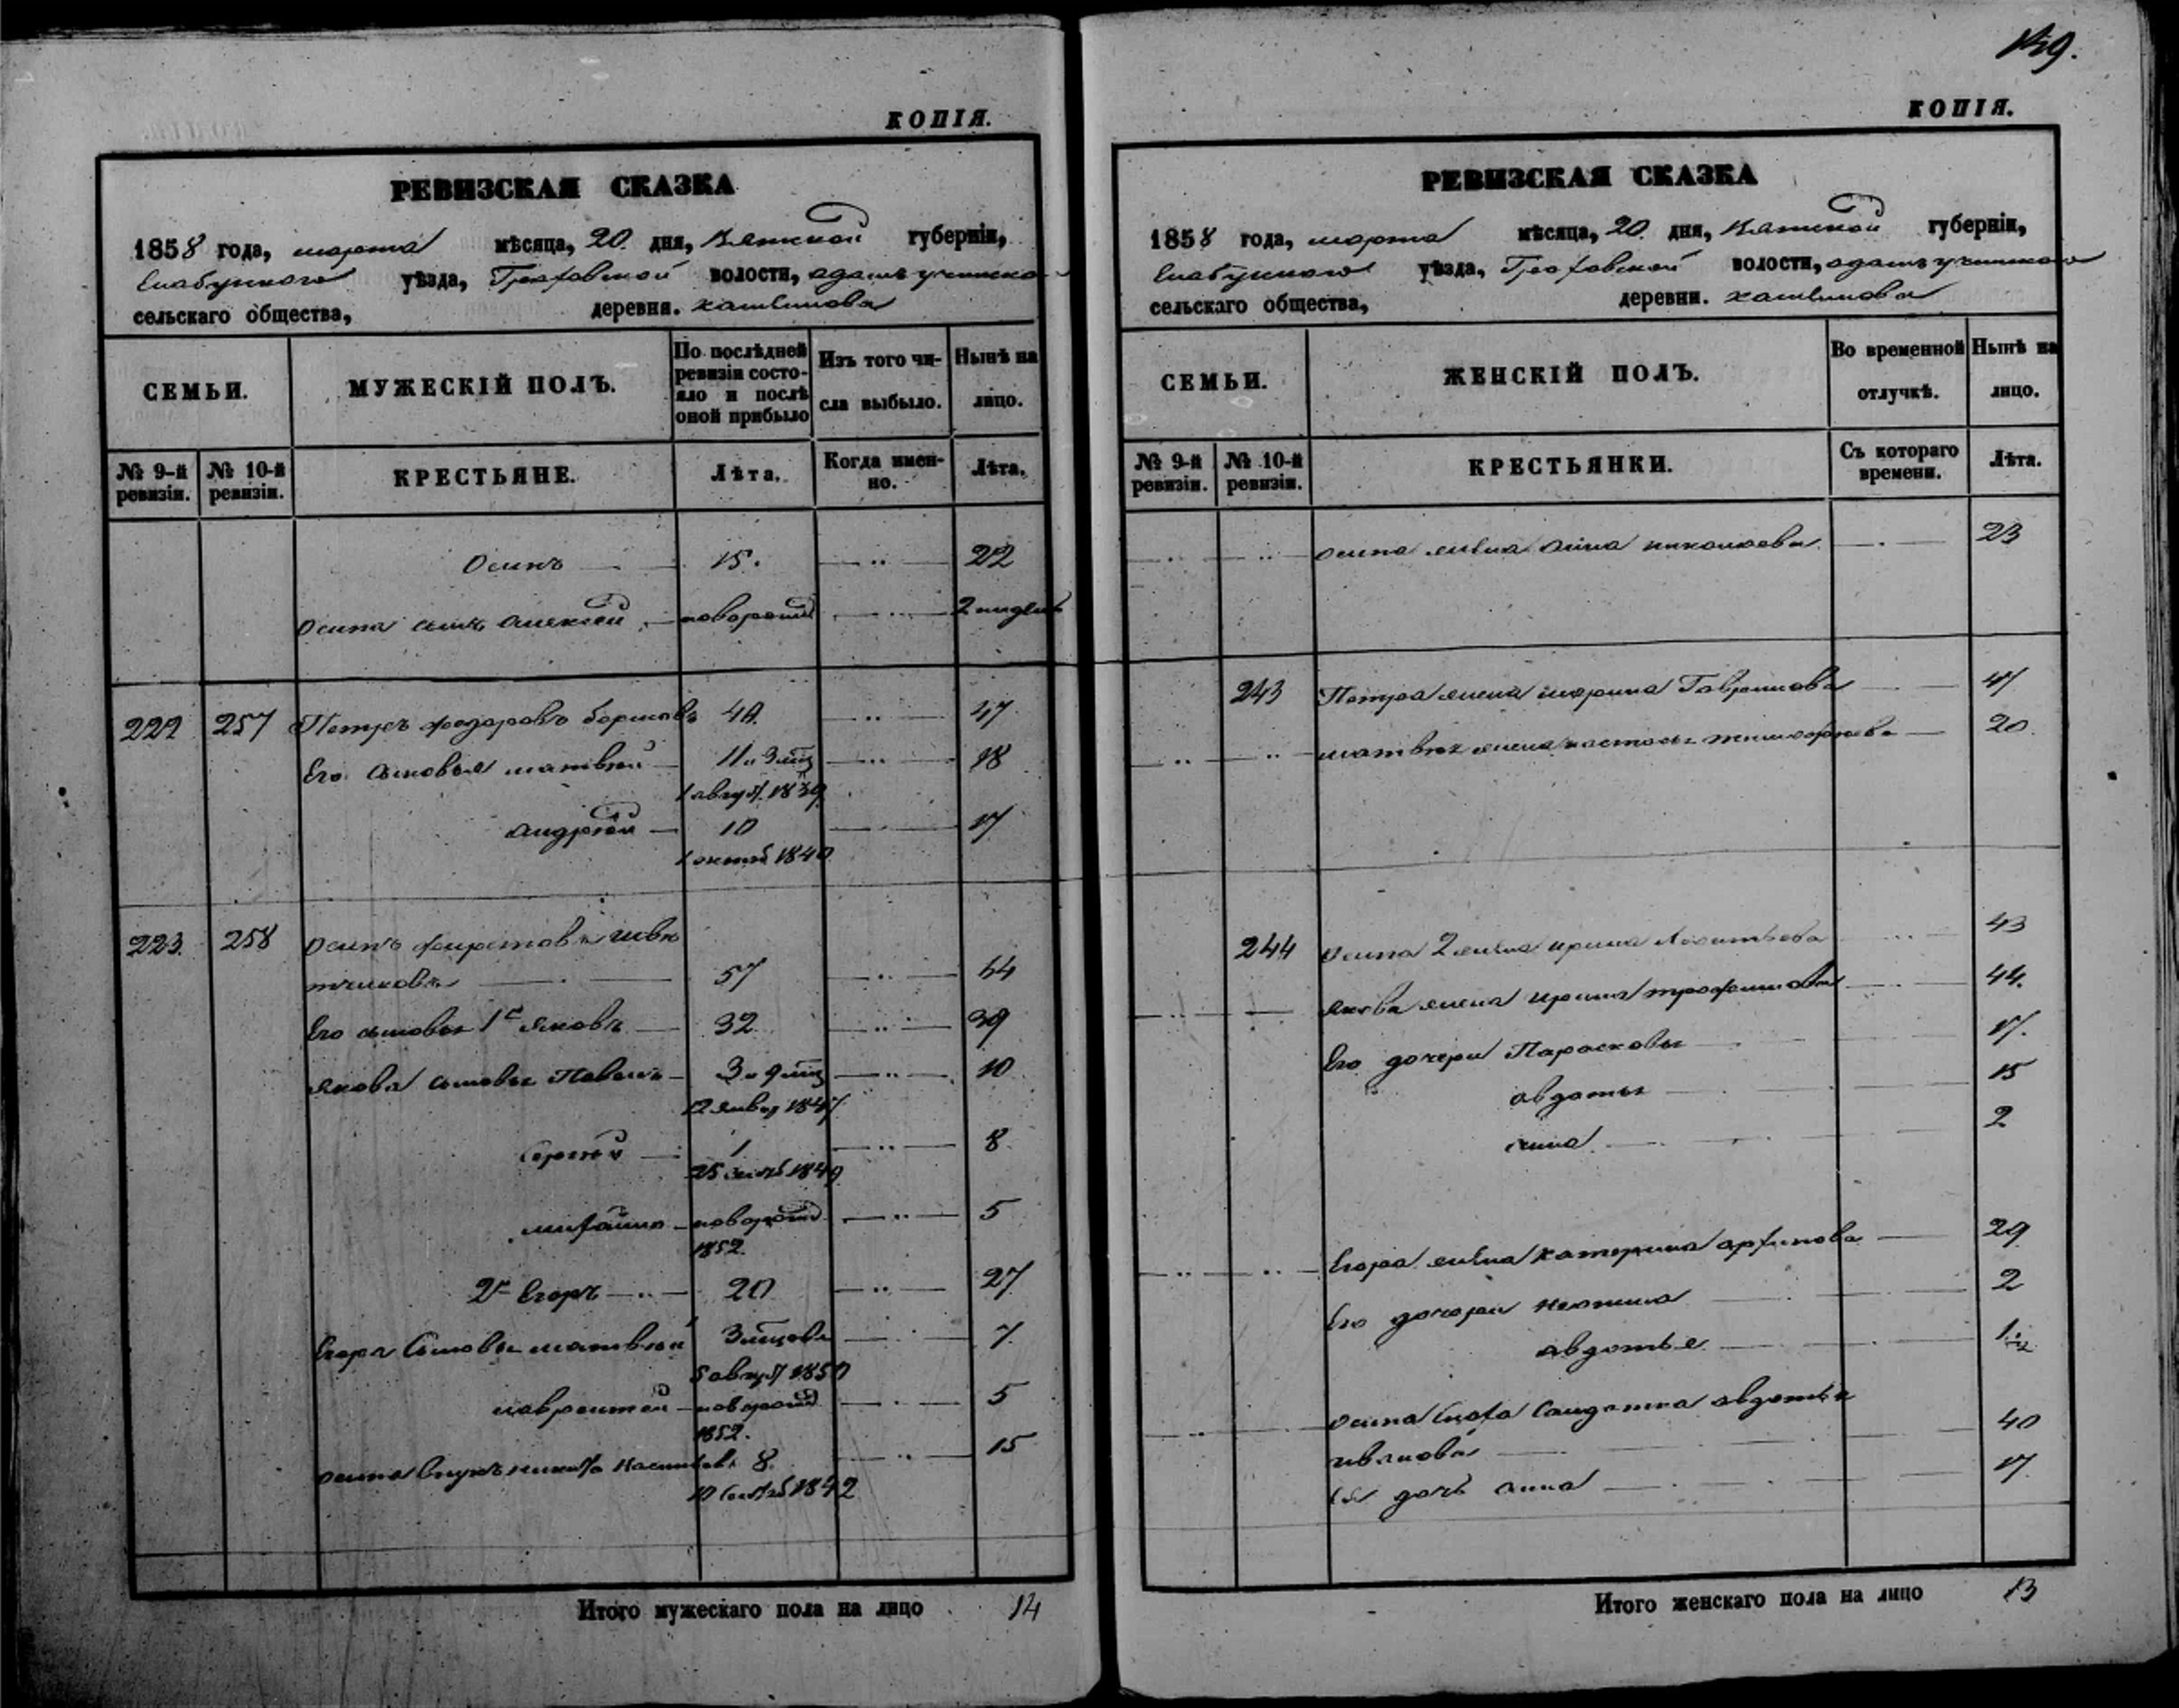 КОПІЯ.
РЕВИЗСКАЯ СКАЗКА
1858 года, марта мѣсяца, 20 дня, Вятской губерніи,
Елабужского уѣзда, Граховской волости,
сельскаго общества, деревни.
СЕМЬИ.
МУЖЕСКІЙ ПОЛЪ.
По послѣдней ревизіи состояло и послѣ оной прибыло
Изъ того числа выбыло.
Нынѣ на лицо.
№ 9-й ревизіи.
№ 10-й ревизіи.
КРЕСТЬЯНЕ.
Лѣта.
Когда именно.
Лѣта.
Осипъ 15. 22
Осипа сынъ Алексей новорожд 2 недель
222 257 Петръ Федоровъ 40 47
Его сыновья Матвей 11 и 3 мц 18
1 август 1839
Андрей 10 17
1 октяб 1840
223. 258 Осипъ
57 64
Его сыновья 1й Яковъ 32 39
Якова сыновья Павелъ 3 и 9 мц 10
12 январ 1847
Сергей 1 8
25 1849
Михайло новорожд 5
1852.
2й Егоръ 20 27
Егора сыновья Матвей 3 мцовъ 7
5 август 1850
Лаврентей новорожд 5
1852.
Осипа внукъ Никита 8. 15
10 1842
Итого мужескаго пола на лицо 14
149.
КОПІЯ.
РЕВИЗСКАЯ СКАЗКА
1858 года, марта мѣсяца, 20 дня, Вятской губерніи,
Елабужского уѣзда, Граховской волости,
сельскаго общества, деревни.
СЕМЬИ.
ЖЕНСКІЙ ПОЛЪ.
Во временной отлучкѣ.
Нынѣ на лицо.
№ 9-й ревизіи.
№ 10-й ревизіи.
КРЕСТЬЯНКИ.
Съ котораго времени.
Лѣта.
Осипа жена Анна Николаева 23
243 Петра жена Марина Гаврилова 47
Матвея жена Настасья 20
244 Осипа 2 жена Ирина 43
Якова жена Ирина Трофимова 44.
Его дочери Парасковья 17.
Авдотья 15
Анна 2
Егора жена Катерина 29
Его дочери 2
Авдотья
Осипа сноха солдатка Авдотья
Иванова 40
Ея дочь Анна 17
Итого женскаго пола на лицо 13